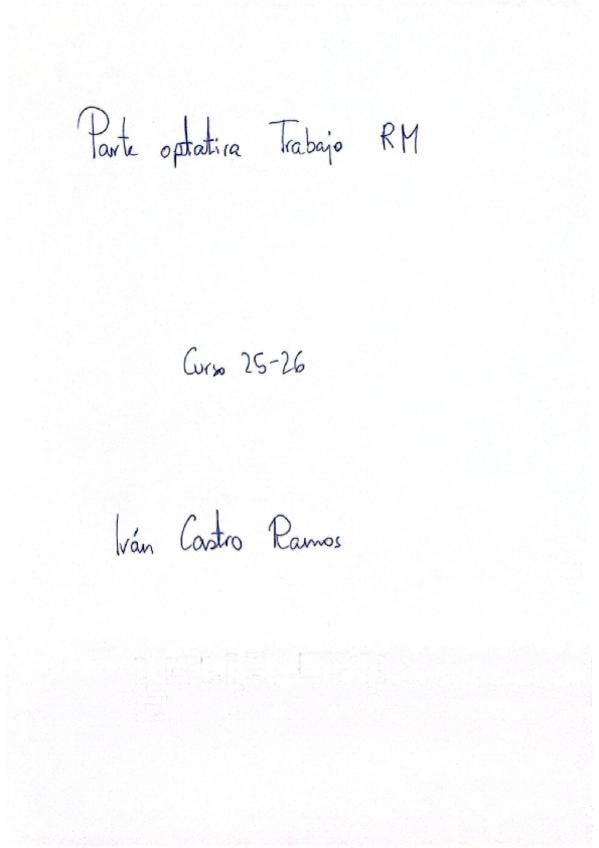 Parte optativa Trabajo RM
Curso 25-26
Iván Castro Ramos